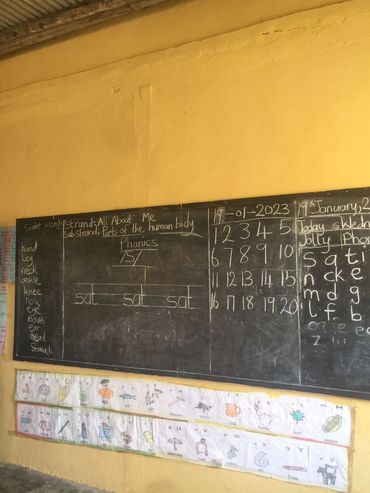 Sight Words
hand
leg
neck
ankle
knee
nose
eye
mouth
ear
head
Stomach
Strand: All About Me
Substrand: Parts of the human body
Phonics
/S/
sat sat sat
19-01-2023
1 2 3 4 5
6 7 8 9 10
11 12 13 14 15
16 17 18 19 20
19th January, 2
Today is Wedn
Jolly Phon
s a t i
n c k e
m d g
l f b